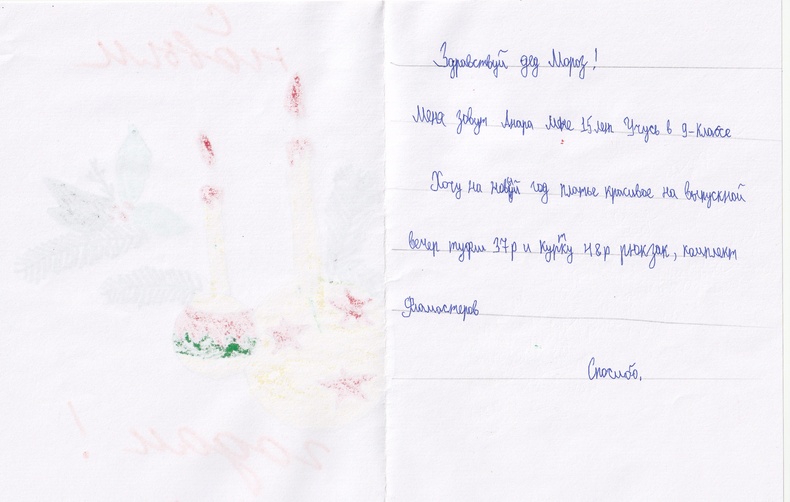 С
новым
годом!
Здравствуй дед Мороз!
Меня зовут Анара мне 15 лет Учусь в 9-классе
Хочу на новый год платье красивое на выпускной
вечер туфли 37р и куртку 48р рюкзак, комплект
Фломастеров
Спасибо.